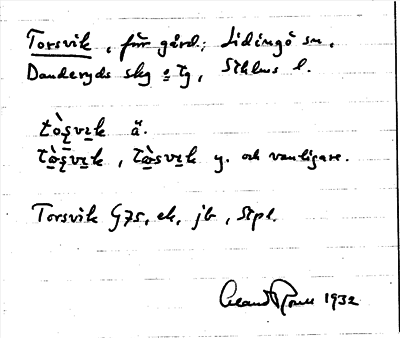 Torsvik, för gård; Lidingö sn.
Danderyds skg o Tg, Sthlms l.
tò̱s̨vi̱k ä.
tὰ̱s̨vi̱k, tὰ̱svi̱k y. och vanligare.
Torsvik G75, ek, jb, Stpl.
1932